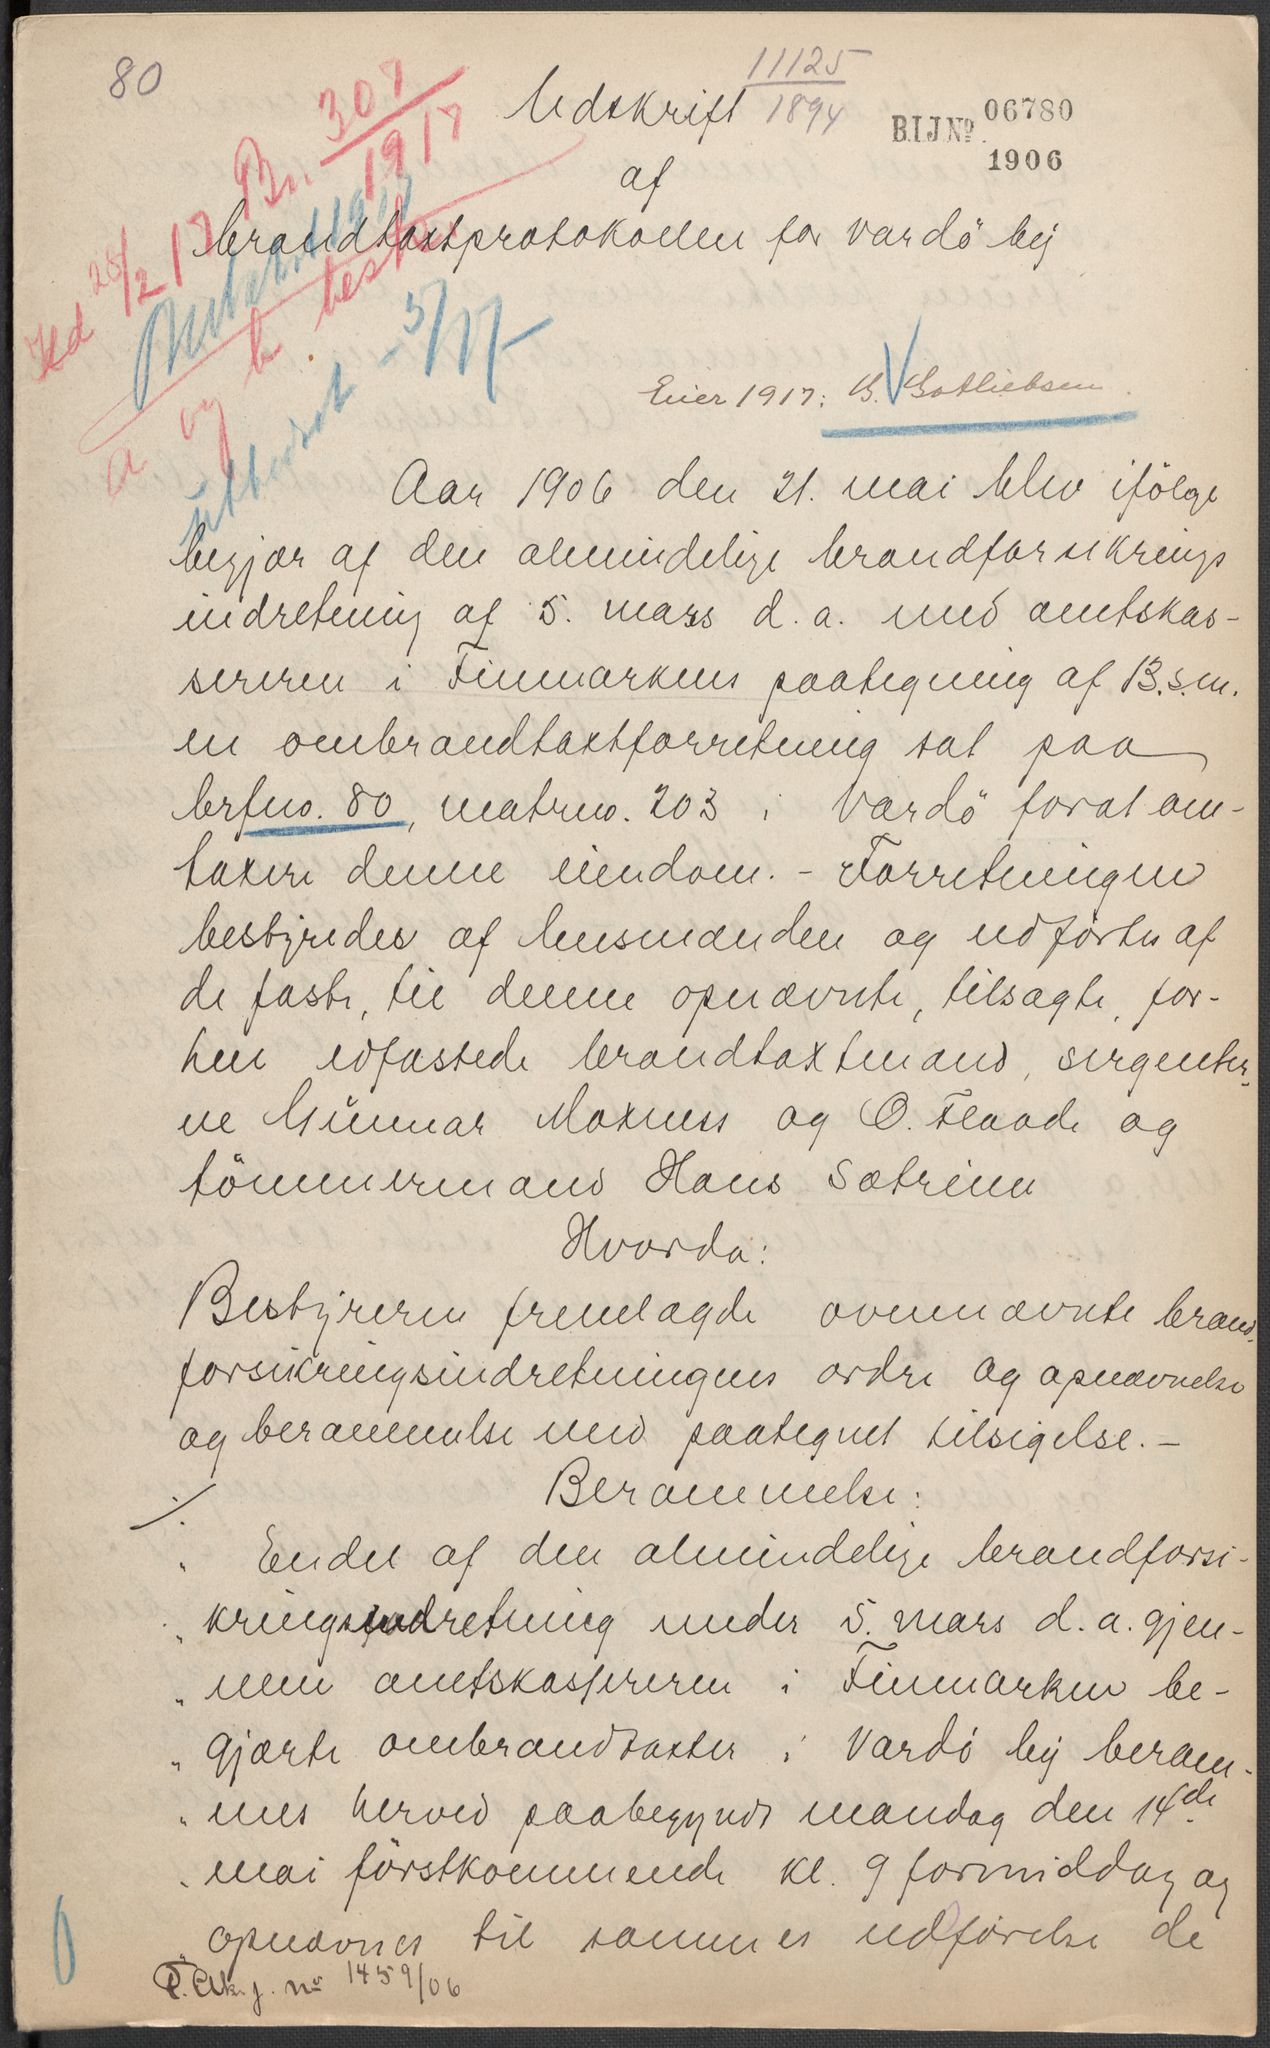 80
11125
1894
Udskrift
B.I.J.Nº 06780
1906
af
brandtaxtprotokollen for Vardö by
Br. 307
1917
28/2 17
a og b
5/17
Eier 1917: G. Gotliebsen.
Aar 1906 den 21. mai blev ifölge
begjær af den almindelige brandforsikrings
indretning af 5. mars d. a. med amtskas-
sereren i Finmarkens paategning af B.s.m.
en ombrandtaxtforretning sat paa
brfno. 80, matrno. 203 i Vardö forat om-
taxere denne eiendom. - Forretningen
bestyredes af lensmanden og udförtes af
de faste, til denne opnævnte, tilsagte, for-
hen edfæstede brandtaxtmænd, sergenter-
ne Günnar Moxness og O. Flaade og
tömmermand Hans Sætrenn
Hvorda:
Bestyreren fremlagde ovennævnte brand-
forsikringsindretningens ordre og opnævnelse
og berammelse med paategnet tilsigelse. -
Berammelse:
./.
" Endel af den almindelige brandforsi-
" kringsindretning under 5. mars d. a. gjen-
" nem amtskassereren i Finmarken be-
" gjærte ombrandtaxter i Vardö by beram-
" mes herved paabegyndt mandag den 14de
" mai förstkommende kl. 9 formiddag og
" opnævnes til sammes udförelse de
1459/06